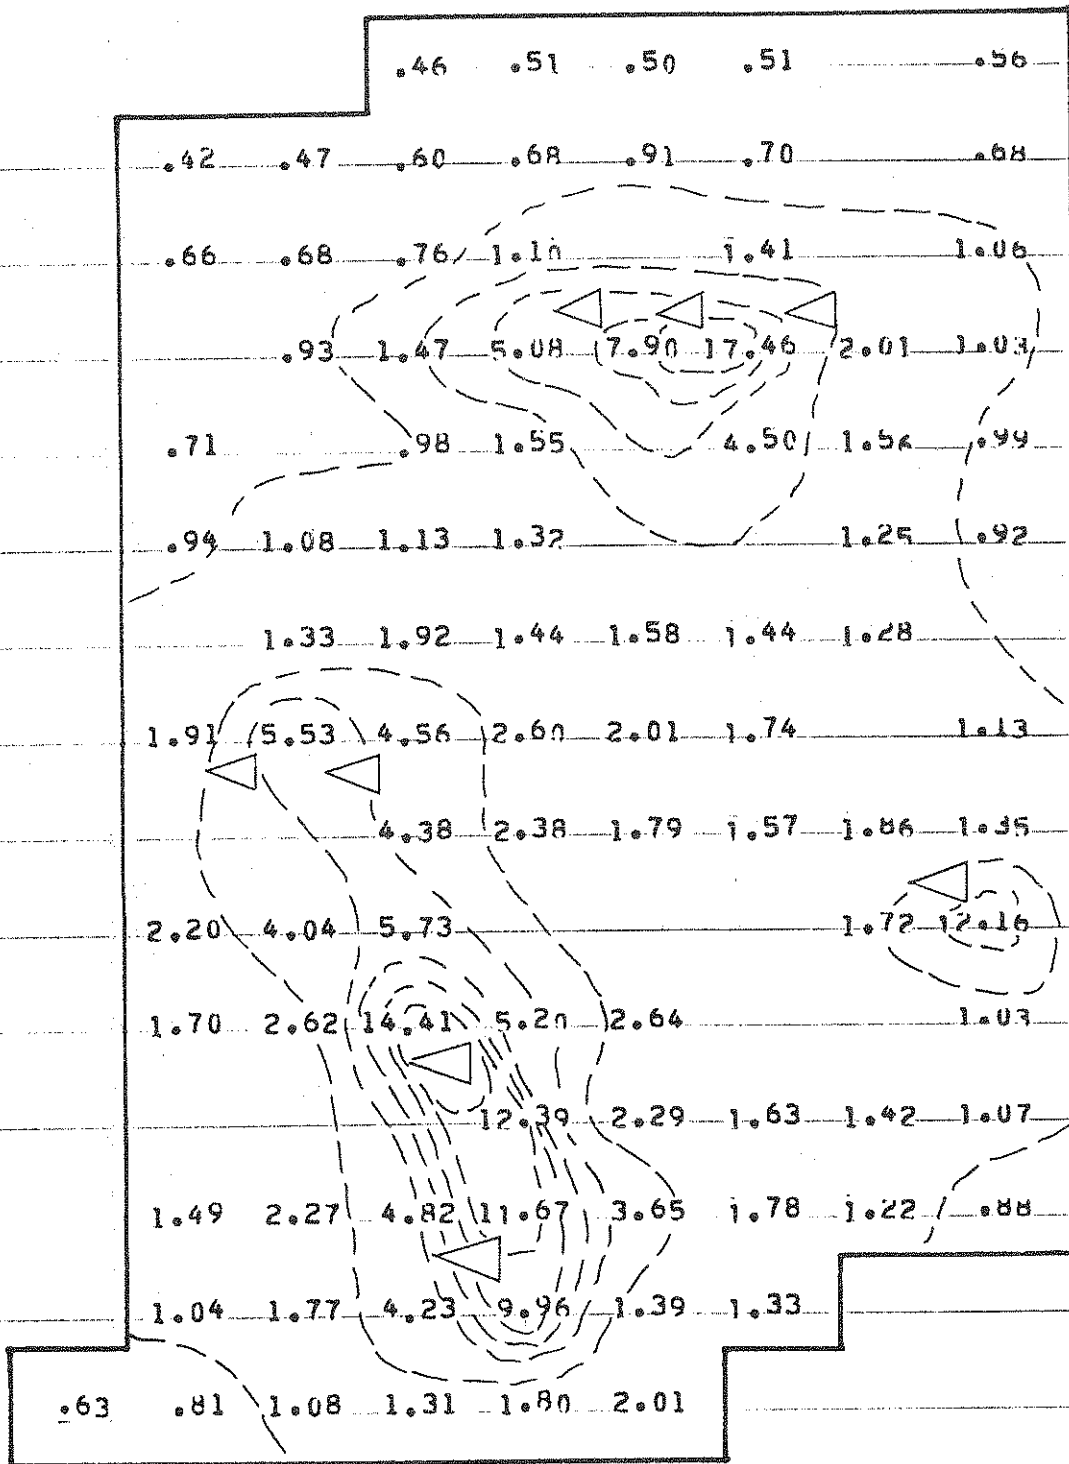 .46 .51 .50 .51 .56
.42 .47 .60 .68 .91 .70 .68
.66 .68 .76 1.10 1.41 1.06
.93 1.47 5.08 7.90 17.46 2.01 1.03
.71 .98 1.55 4.50 .99
.94 1.08 1.13 1.32 1.25 .92
1.33 1.92 1.44 1.58 1.44 1.28
1.91 5.53 4.56 2.60 2.01 1.74 1.13
4.38 2.38 1.79 1.57 1.86 1.35
2.20 4.04 5.73 1.72 12.16
1.70 2.62 14.41 5.20 2.64 1.03
12.39 2.29 1.63 1.42 1.07
1.49 2.27 4.82 11.67 3.65 1.78 1.22 .88
1.04 1.77 4.23 9.96 1.39 1.33
.63 .81 1.08 1.31 1.80 2.01